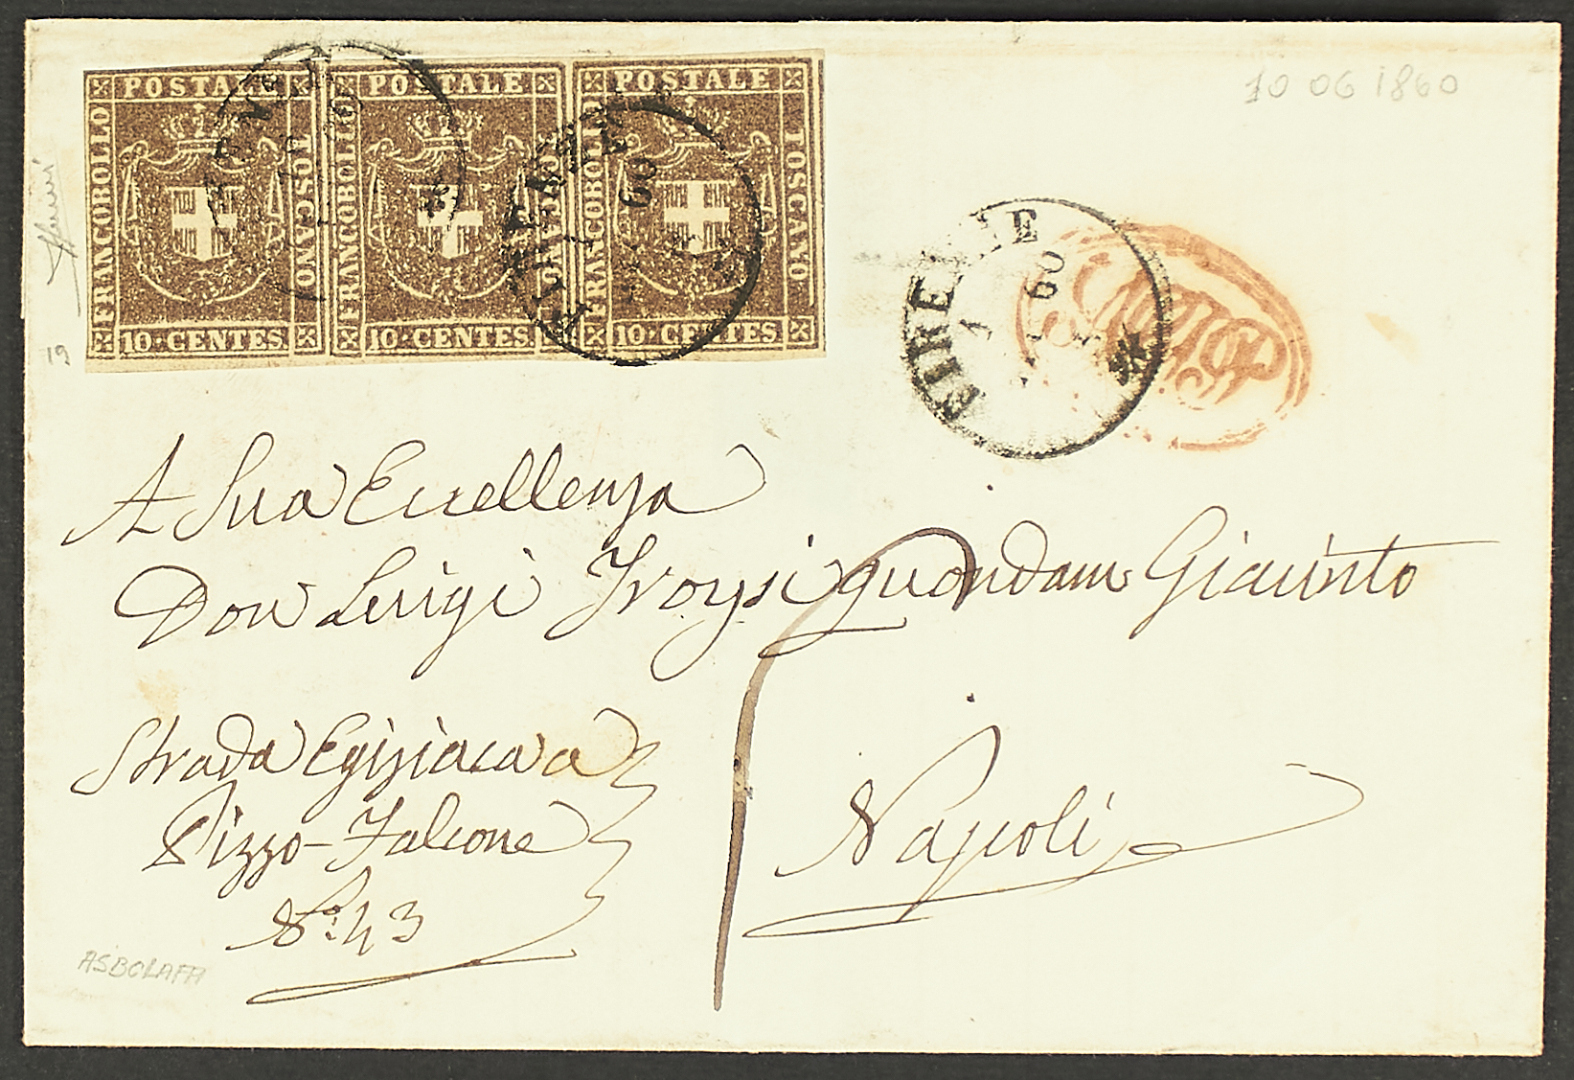 10 06 1860
POSTALE POSTALE POSTALE
FRANCOBOLLO TOSCANO FRANCOBOLLO TOSCANO FRANCOBOLLO TOSCANO
10 CENTES. 10 CENTES. 10 CENTES.
FIRENZE
60
FIRENZE
60
FIRENZE
60
19
A Sua Eccellenza
Don Luigi quondam Giacinto
Strada Egiziaca a
Pizzo-Falcone
No. 43
Napoli
ASBOLAFFI